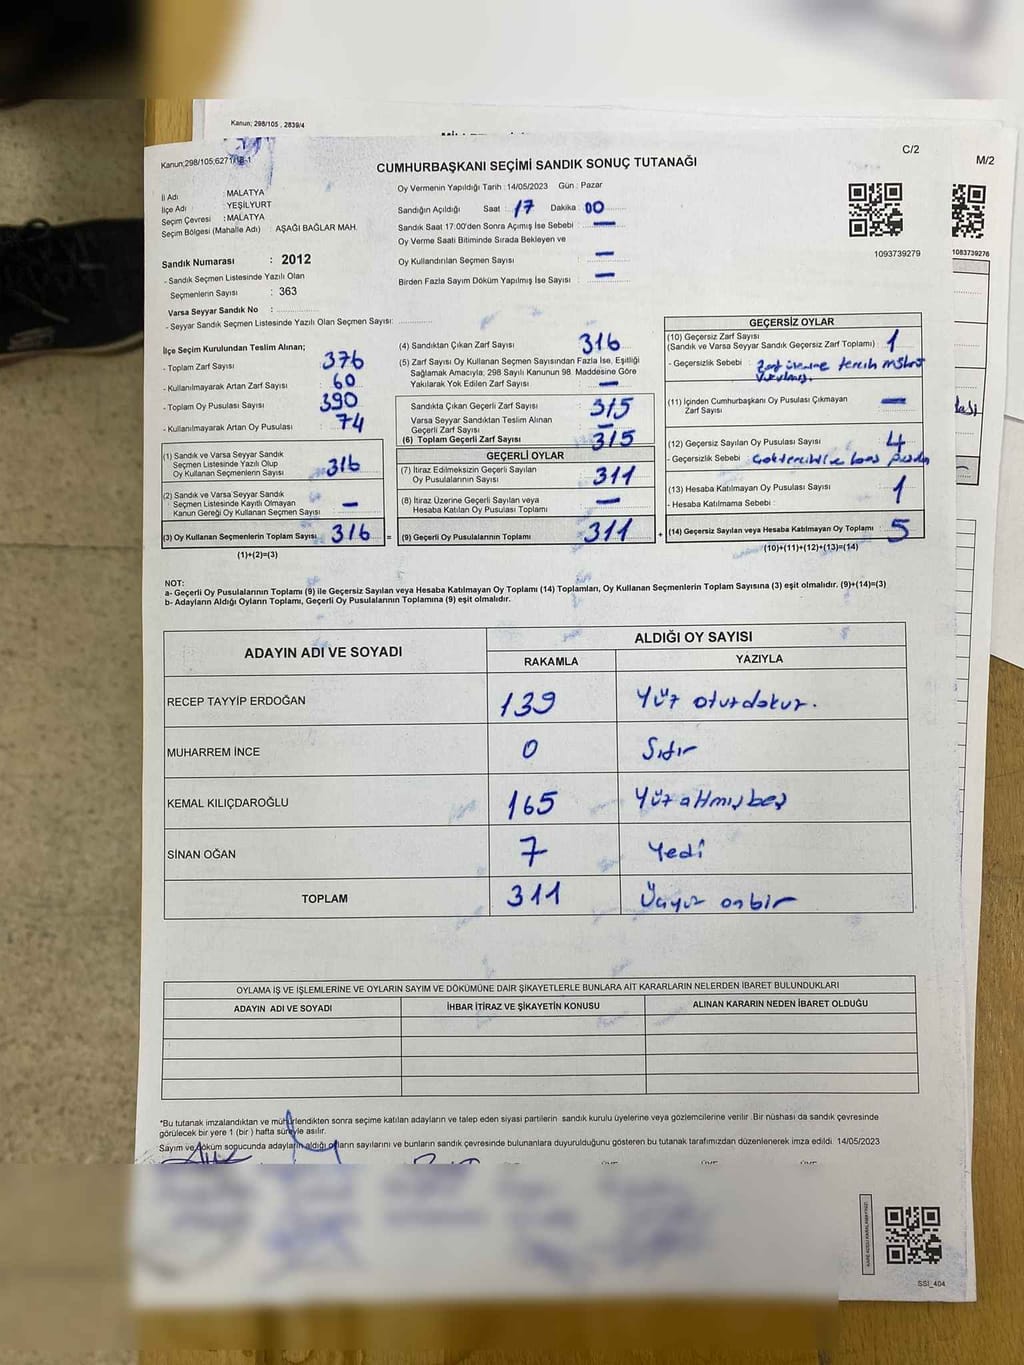 Kanun; 298/105 , 2839/4
Kanun;298/105;6271/18-1
C/2
M/2
CUMHURBAŞKANI SEÇİMİ SANDIK SONUÇ TUTANAĞI
İl Adı : MALATYA
İlçe Adı : YEŞİLYURT
Seçim Çevresi : MALATYA
Seçim Bölgesi (Mahalle Adı) : AŞAĞI BAĞLAR MAH.
Sandık Numarası : 2012
- Sandık Seçmen Listesinde Yazılı Olan
Seçmenlerin Sayısı : 363
Varsa Seyyar Sandık No :
- Seyyar Sandık Seçmen Listesinde Yazılı Olan Seçmen Sayısı:
Oy Vermenin Yapıldığı Tarih : 14/05/2023 Gün : Pazar
Sandığın Açıldığı Saat : 17 Dakika : 00
Sandık Saat 17:00'den Sonra Açımış İse Sebebi : —
Oy Verme Saati Bitiminde Sırada Bekleyen ve
Oy Kullandırılan Seçmen Sayısı : —
Birden Fazla Sayım Döküm Yapılmış İse Sayısı : —
1093739279
1083739276
İlçe Seçim Kurulundan Teslim Alınan;
- Toplam Zarf Sayısı : 376
- Kullanılmayarak Artan Zarf Sayısı : 60
- Toplam Oy Pusulası Sayısı : 390
- Kullanılmayarak Artan Oy Pusulası : 74
(1) Sandık ve Varsa Seyyar Sandık
Seçmen Listesinde Yazılı Olup
Oy Kullanan Seçmenlerin Sayısı : 316
(2) Sandık ve Varsa Seyyar Sandık
Seçmen Listesinde Kayıtlı Olmayan
Kanun Gereği Oy Kullanan Seçmen Sayısı : —
(3) Oy Kullanan Seçmenlerin Toplam Sayısı : 316 =
(1)+(2)=(3)
(4) Sandıktan Çıkan Zarf Sayısı : 316
(5) Zarf Sayısı Oy Kullanan Seçmen Sayısından Fazla İse, Eşitliği
Sağlamak Amacıyla; 298 Sayılı Kanunun 98. Maddesine Göre
Yakılarak Yok Edilen Zarf Sayısı : —
Sandıkta Çıkan Geçerli Zarf Sayısı : 315
Varsa Seyyar Sandıktan Teslim Alınan
Geçerli Zarf Sayısı : —
(6) Toplam Geçerli Zarf Sayısı : 315
GEÇERLİ OYLAR
(7) İtiraz Edilmeksizin Geçerli Sayılan
Oy Pusulasının Sayısı : 311
(8) İtiraz Üzerine Geçerli Sayılan veya
Hesaba Katılan Oy Pusulası Toplamı : —
(9) Geçerli Oy Pusulalarının Toplamı : 311 +
GEÇERSİZ OYLAR
(10) Geçersiz Zarf Sayısı
(Sandık ve Varsa Seyyar Sandık Geçersiz Zarf Toplamı) : 1
- Geçersizlik Sebebi : Zarf üzerine tercih mührü
vurulmuş.
(11) İçinden Cumhurbaşkanı Oy Pusulası Çıkmayan
Zarf Sayısı : —
(12) Geçersiz Sayılan Oy Pusulası Sayısı : 4
- Geçersizlik Sebebi :
(13) Hesaba Katılmayan Oy Pusulası Sayısı : 1
- Hesaba Katılmama Sebebi :
(14) Geçersiz Sayılan veya Hesaba Katılmayan Oy Toplamı : 5
(10)+(11)+(12)+(13)=(14)
NOT:
a- Geçerli Oy Pusulalarının Toplamı (9) ile Geçersiz Sayılan veya Hesaba Katılmayan Oy Toplamı (14) Toplamları, Oy Kullanan Seçmenlerin Toplam Sayısına (3) eşit olmalıdır. (9)+(14)=(3)
b- Adayların Aldığı Oyların Toplamı, Geçerli Oy Pusulalarının Toplamına (9) eşit olmalıdır.
ADAYIN ADI VE SOYADI ALDIĞI OY SAYISI
RAKAMLA YAZIYLA
RECEP TAYYİP ERDOĞAN 139 Yüz oturdokuz.
MUHARREM İNCE 0 Sıfır
KEMAL KILIÇDAROĞLU 165 Yüz altmışbeş
SİNAN OĞAN 7 Yedi
TOPLAM 311 Üçyüz onbir
OYLAMA İŞ VE İŞLEMLERİNE VE OYLARIN SAYIM VE DÖKÜMÜNE DAİR ŞİKAYETLERLE BUNLARA AİT KARARLARIN NELERDEN İBARET BULUNDUKLARI
ADAYIN ADI VE SOYADI İHBAR İTİRAZ VE ŞİKAYETİN KONUSU ALINAN KARARIN NEDEN İBARET OLDUĞU
*Bu tutanak imzalandıktan ve mühürlendikten sonra seçime katılan adayların ve talep eden siyasi partilerin sandık kurulu üyelerine veya gözlemcilerine verilir .Bir nüshası da sandık çevresinde
görülecek bir yere 1 (bir ) hafta süreyle asılır.
Sayım ve döküm sonucunda adayların aldığı oyların sayılarını ve bunların sandık çevresinde bulunanlara duyurulduğunu gösteren bu tutanak tarafımızdan düzenlenerek imza edildi. 14/05/2023
SSI_404